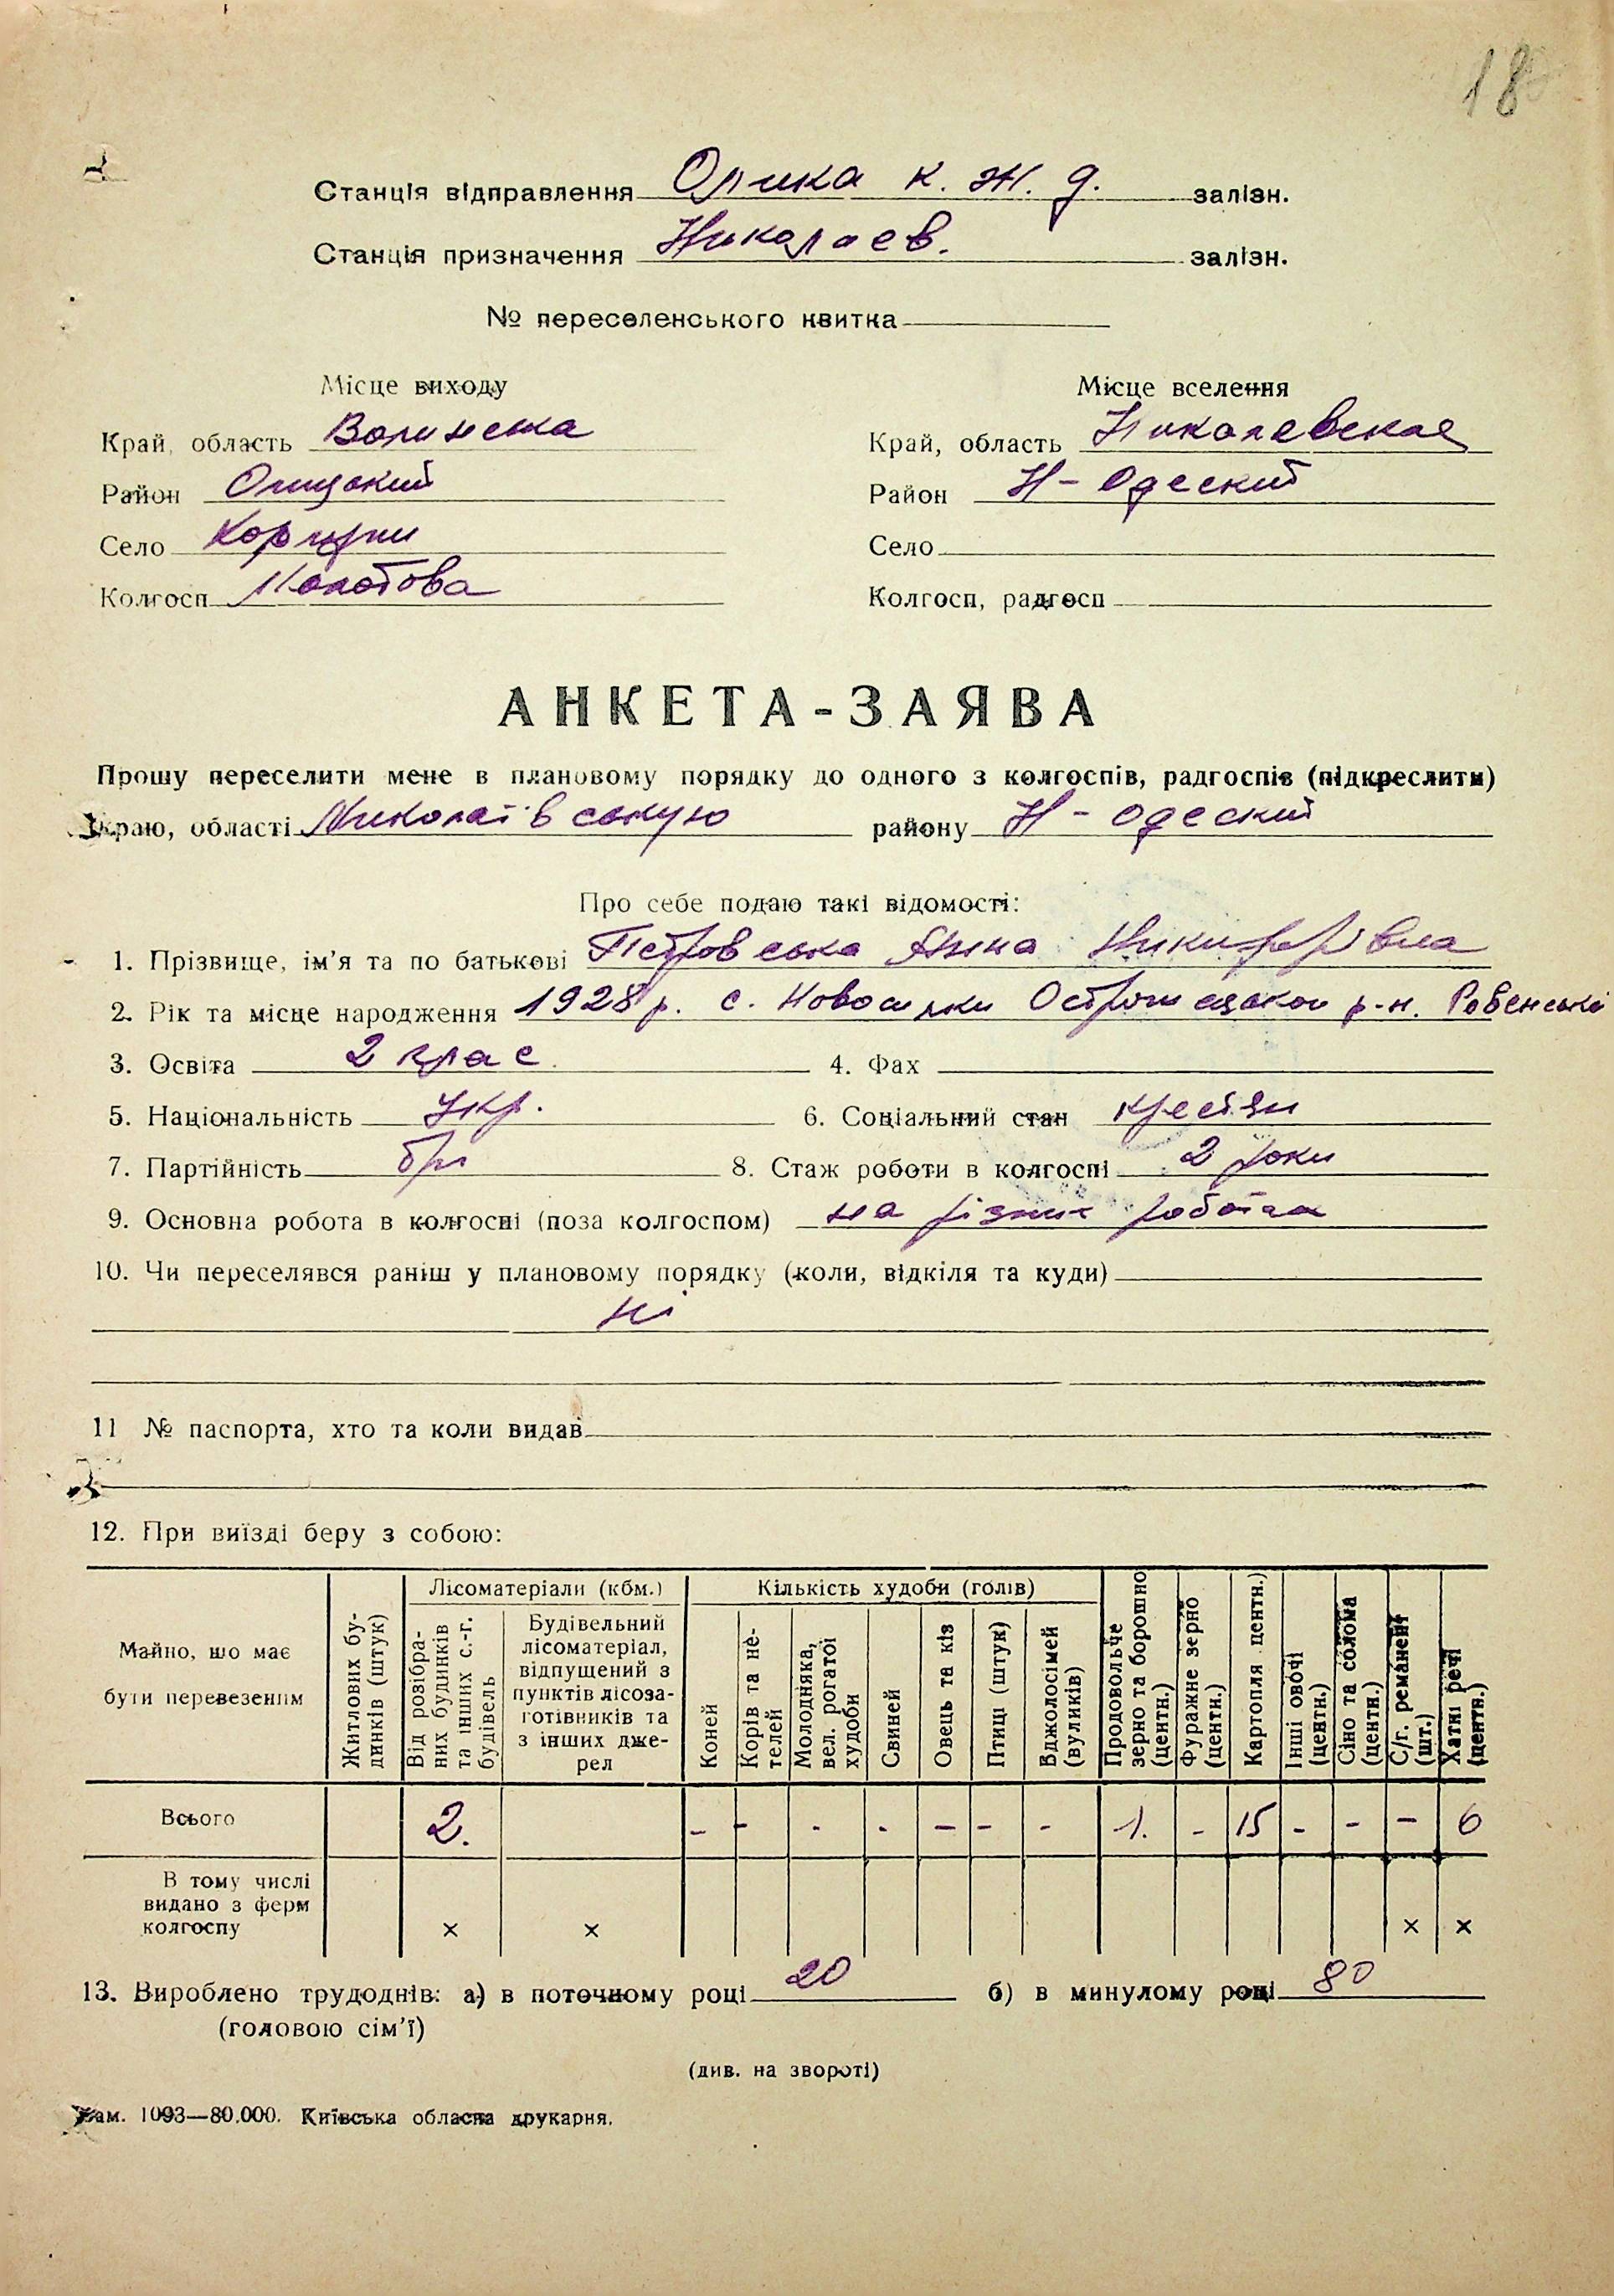 18
Станція відправлення Олика к. ж. д. залізн.
Станція призначення Николаев. залізн.
№ переселенського квитка
Місце виходу
Край, область Волинська
Район Олицький
Село
Колгосп Молотова
Місце вселення
Край, область Николаевская
Район Н-Одеский
Село
Колгосп, радгосп
АНКЕТА-ЗАЯВА
Прошу переселити мене в плановому порядку до одного з колгоспів, радгоспів (підкреслити)
краю, області Миколаївську району Н-Одеский
Про себе подаю такі відомості:
1. Прізвище, ім'я та по батькові Петровська Яніна Никифорівна
2. Рік та місце народження 1928 р. с. Новосілки р-н. Ровенська
3. Освіта 2 клас. 4. Фах
5. Національність Укр. 6. Соціальний стан крестян
7. Партійність б/п 8. Стаж роботи в колгоспі 2 роки
9. Основна робота в колгоспі (поза колгоспом) на різних роботах
10. Чи переселявся раніш у плановому порядку (коли, відкіля та куди)
ні
11 № паспорта, хто та коли видав
12. При виїзді беру з собою:
Майно, що має бути перевезеним
Житлових будинків (штук)
Лісоматеріали (кбм.)
Від розібраних будинків та інших с.-г. будівель
Будівельний лісоматеріал, відпущений з пунктів лісозаготівників та з інших джерел
Кількість худоби (голів)
Коней
Корів та нетелей
Молодняка, вел. рогатої худоби
Свиней
Овець та кіз
Птиці (штук)
Бджолосімей (вуликів)
Продовольче зерно та борошно (центн.)
Фуражне зерно (центн.)
Картопля центн.)
Інші овочі (центн.)
Сіно та солома (центн.)
С/г. реманент (шт.)
Хатні речі (центн.)
Всього 2. - - - - - - - 1. - 15 - - - 6
В тому числі видано з ферм колгоспу × × × ×
13. Вироблено трудоднів: а) в поточному році 20 б) в минулому році 80
(головою сім'ї)
(див. на звороті)
Зам. 1093—80.000. Київська обласна друкарня.